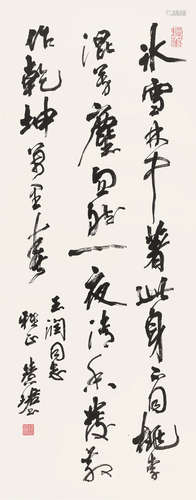 冰雪林中著此身不同桃李
混芳塵忽然一夜清香發散
作乾坤萬里春
润同志
雅正